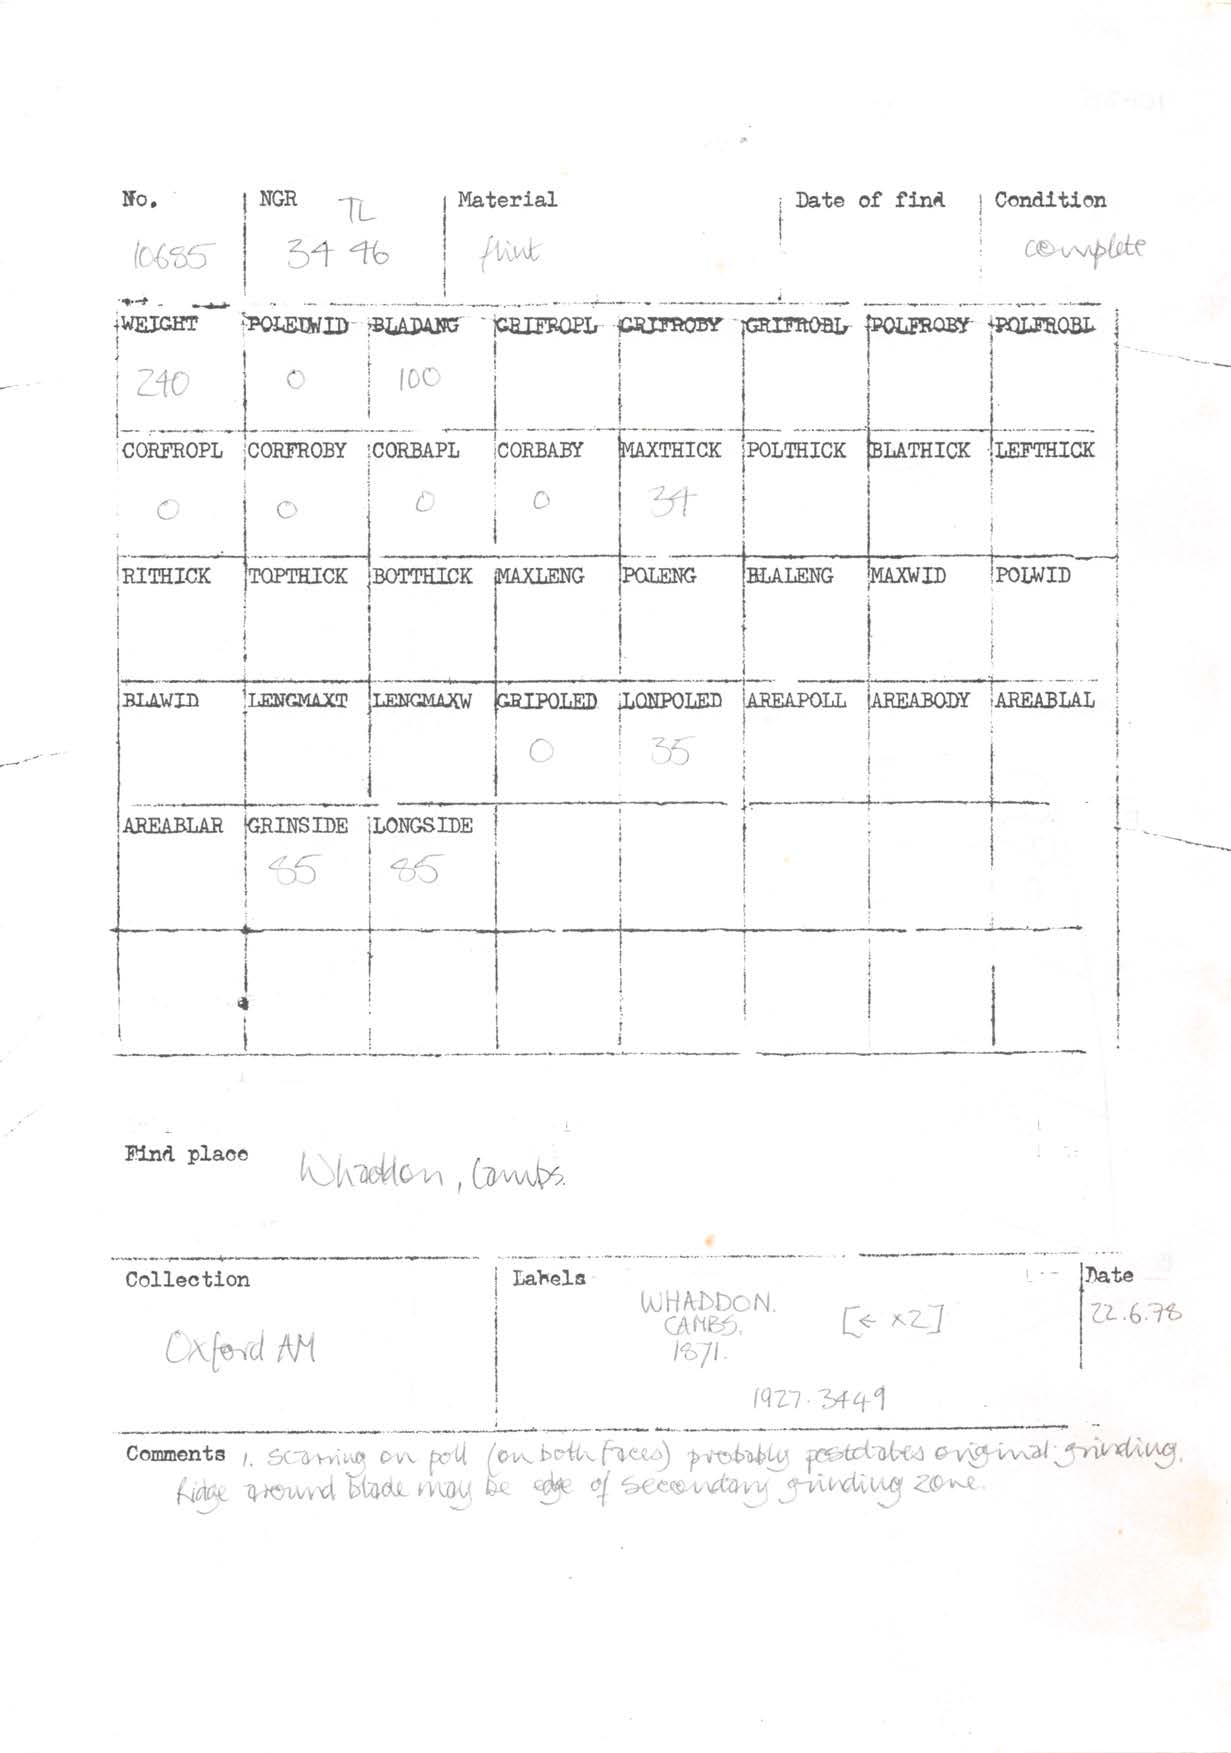 No. NGR TL Material Date of find Condition
10685 34 46 flint complete
WEIGHT POLEDWID BLADANG GRIFROPL GRIFROBY GRIFROBL POLFROBY POLFROBL
240 0 100
CORFROPL CORFROBY CORBAPL CORBABY MAXTHICK POLTHICK BLATHICK LEFTHICK
0 0 0 0 34
RITHICK TOPTHICK BOTTHICK MAXLENG POLENG BLALENG MAXWID POLWID
BLAWID LENGMAXT LENGMAXW GRIPOLED LONPOLED AREAPOLL AREABODY AREABLAL
0 35
AREABLAR GRINSIDE LONGSIDE
85 85
Find place Whaddon, Cambs.
Collection Labels Date
WHADDON. [← x2] 22.6.78
CAMBS.
Oxford AM 1871.
1927.3449
Comments 1. Scarring on poll (on both faces) probably postdates original grinding.
Ridge around blade may be edge of secondary grinding zone.